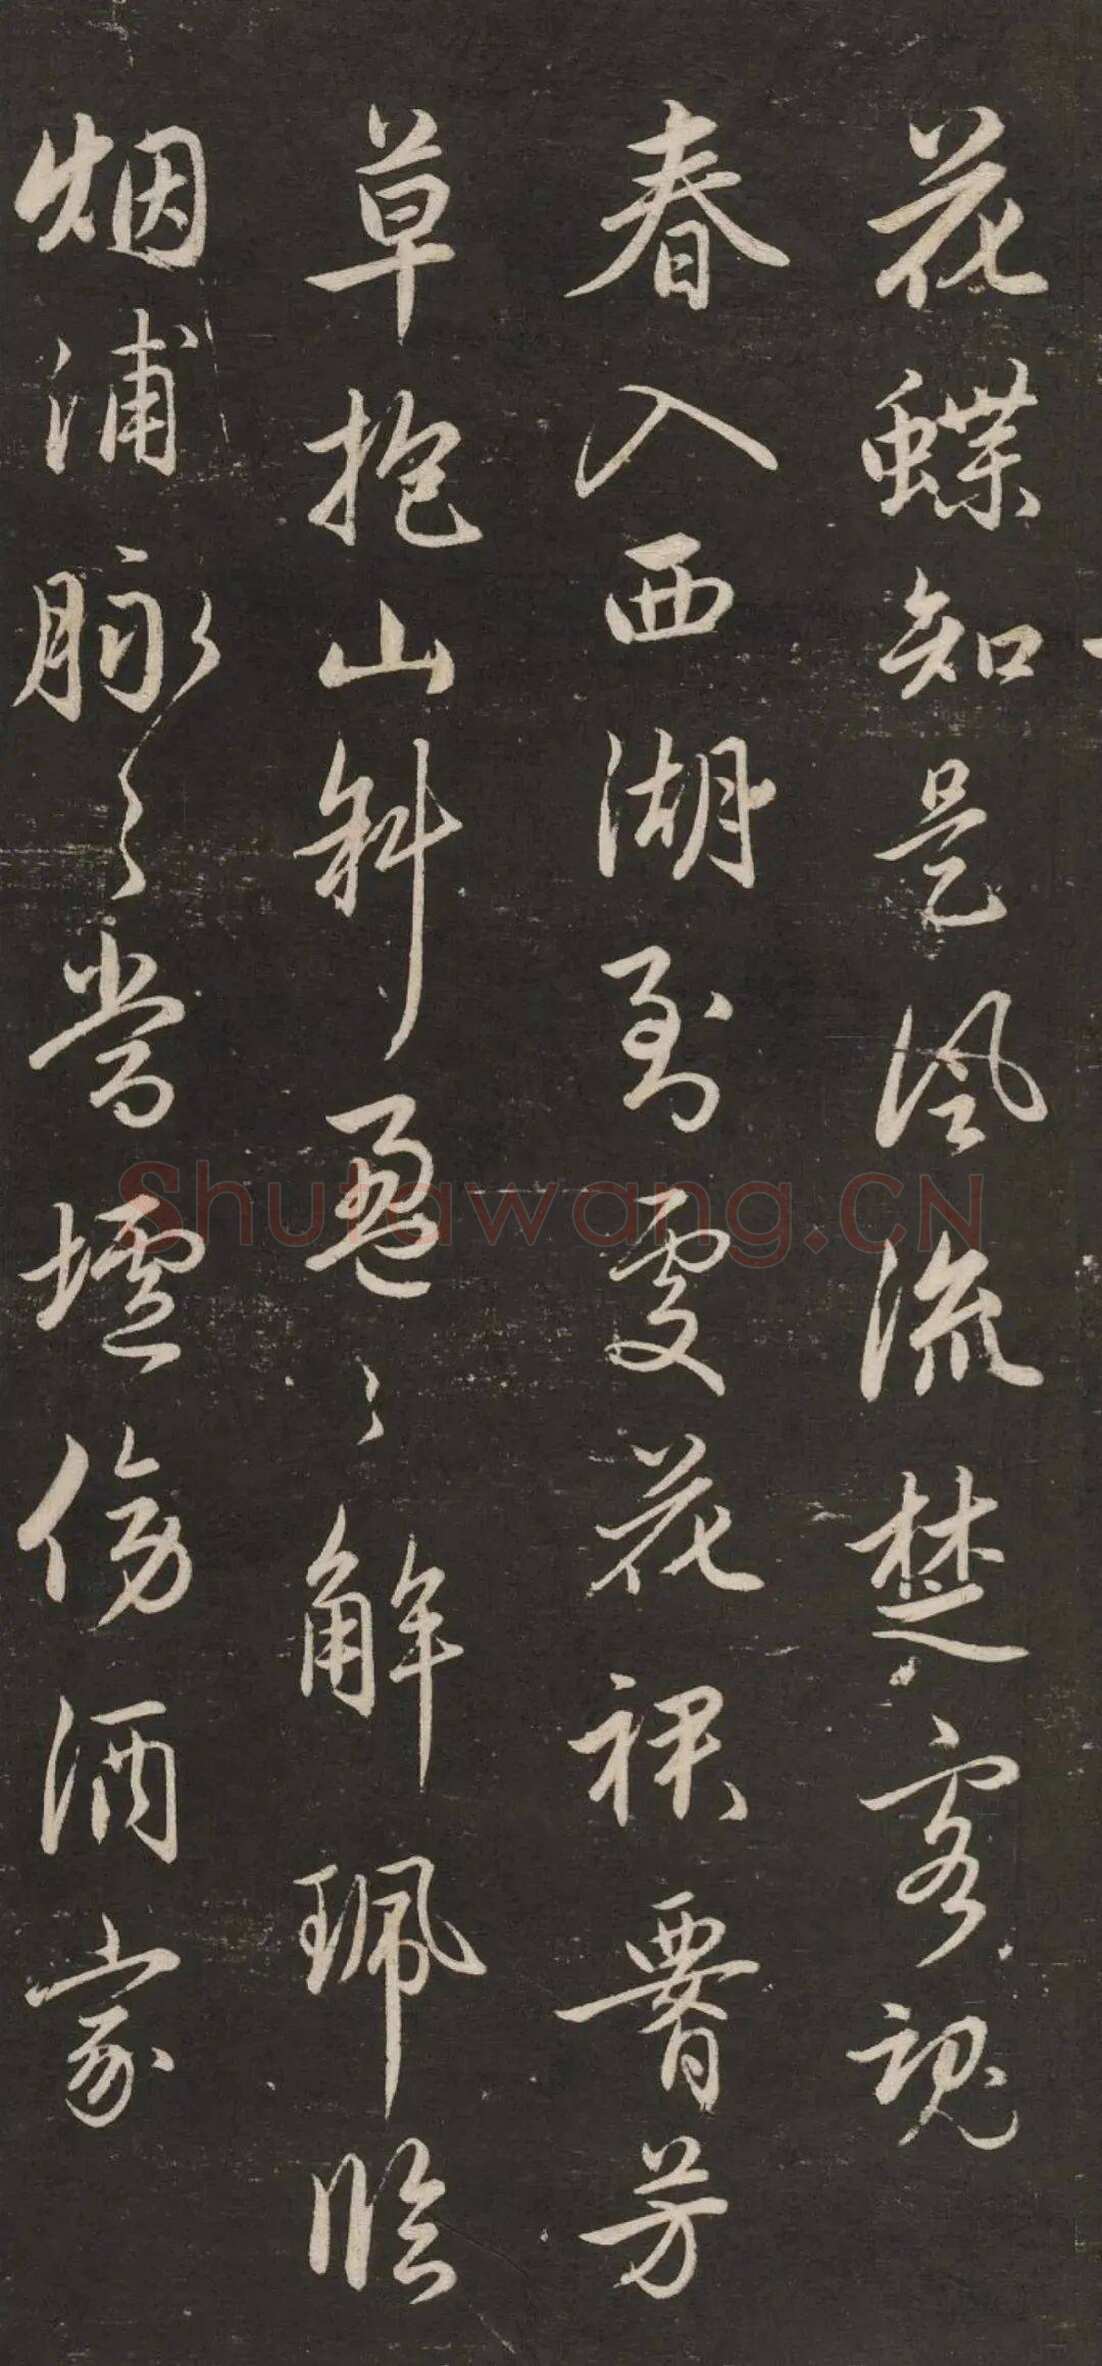 花蝶知是風流楚客魂
春入西湖到處花裙腰芳
草抱山斜盈盈解珮臨
烟浦脉脉當壚傍酒家
Shufawang.CN